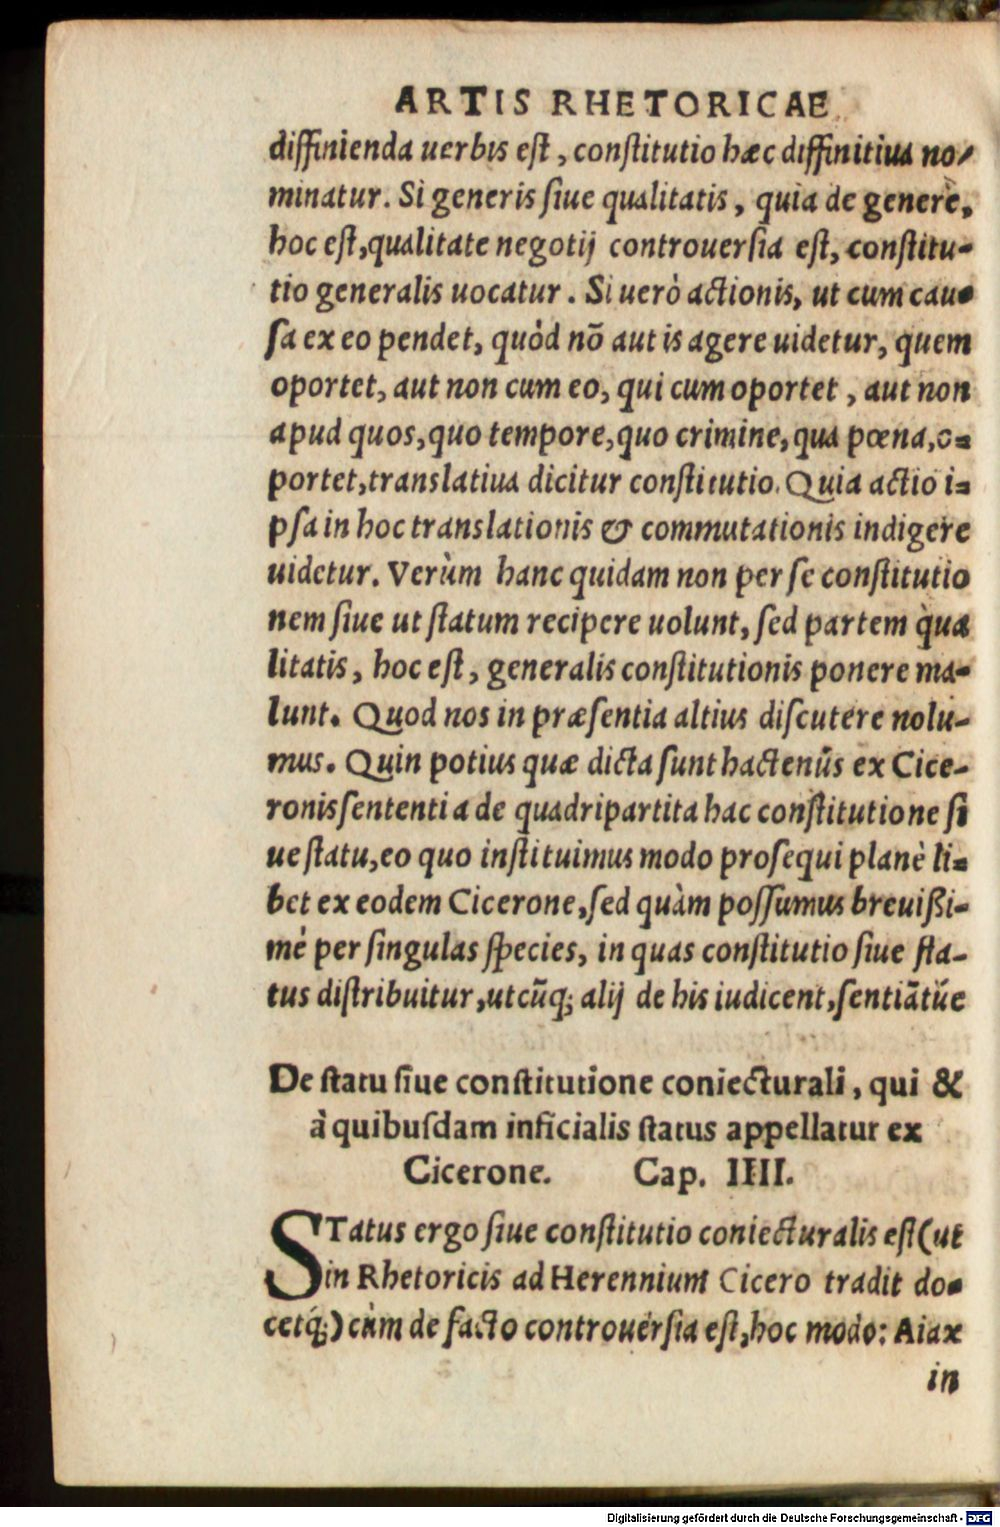 ARTIS RHETORICAE
diffinienda uerbis eſt, conſtitutio hæc diffinitiua no-
minatur. Si generis ſiue qualitatis, quia de genere,
hoc eſt, qualitate negotij controuerſia eſt, conſtitu-
tio generalis uocatur. Si uerò actionis, ut cum cau-
ſa ex eo pendet, quòd nō aut is agere uidetur, quem
oportet, aut non cum eo, qui cum oportet, aut non
apud quos, quo tempore, quo crimine, qua pœna, o-
portet, translatiua dicitur conſtitutio. Quia actio i-
pſa in hoc translationis & commutationis indigere
uidetur. Verùm hanc quidam non per ſe conſtitutio
nem ſiue ut ſtatum recipere uolunt, ſed partem qua
litatis, hoc eſt, generalis conſtitutionis ponere ma-
lunt. Quod nos in præſentia altius diſcutere nolu-
mus. Quin potius quæ dicta ſunt hactenûs ex Cice-
ronis ſententia de quadripartita hac conſtitutione ſi
ue ſtatu, eo quo inſtituimus modo proſequi planè li-
bet ex eodem Cicerone, ſed quàm poſſumus breuißi-
mè per ſingulas ſpecies, in quas conſtitutio ſiue ſta-
tus diſtribuitur, utcūq; alij de his iudicent, ſentiātúe
De ſtatu ſiue conſtitutione coniecturali, qui &
à quibuſdam inficialis ſtatus appellatur ex
Cicerone. Cap. IIII.
STatus ergo ſiue conſtitutio coniecturalis eſt (ut
in Rhetoricis ad Herennium Cicero tradit do-
cetq́;) cùm de facto controuerſia eſt, hoc modo: Aiax
in
Digitalisierung gefördert durch die Deutsche Forschungsgemeinschaft - DFG